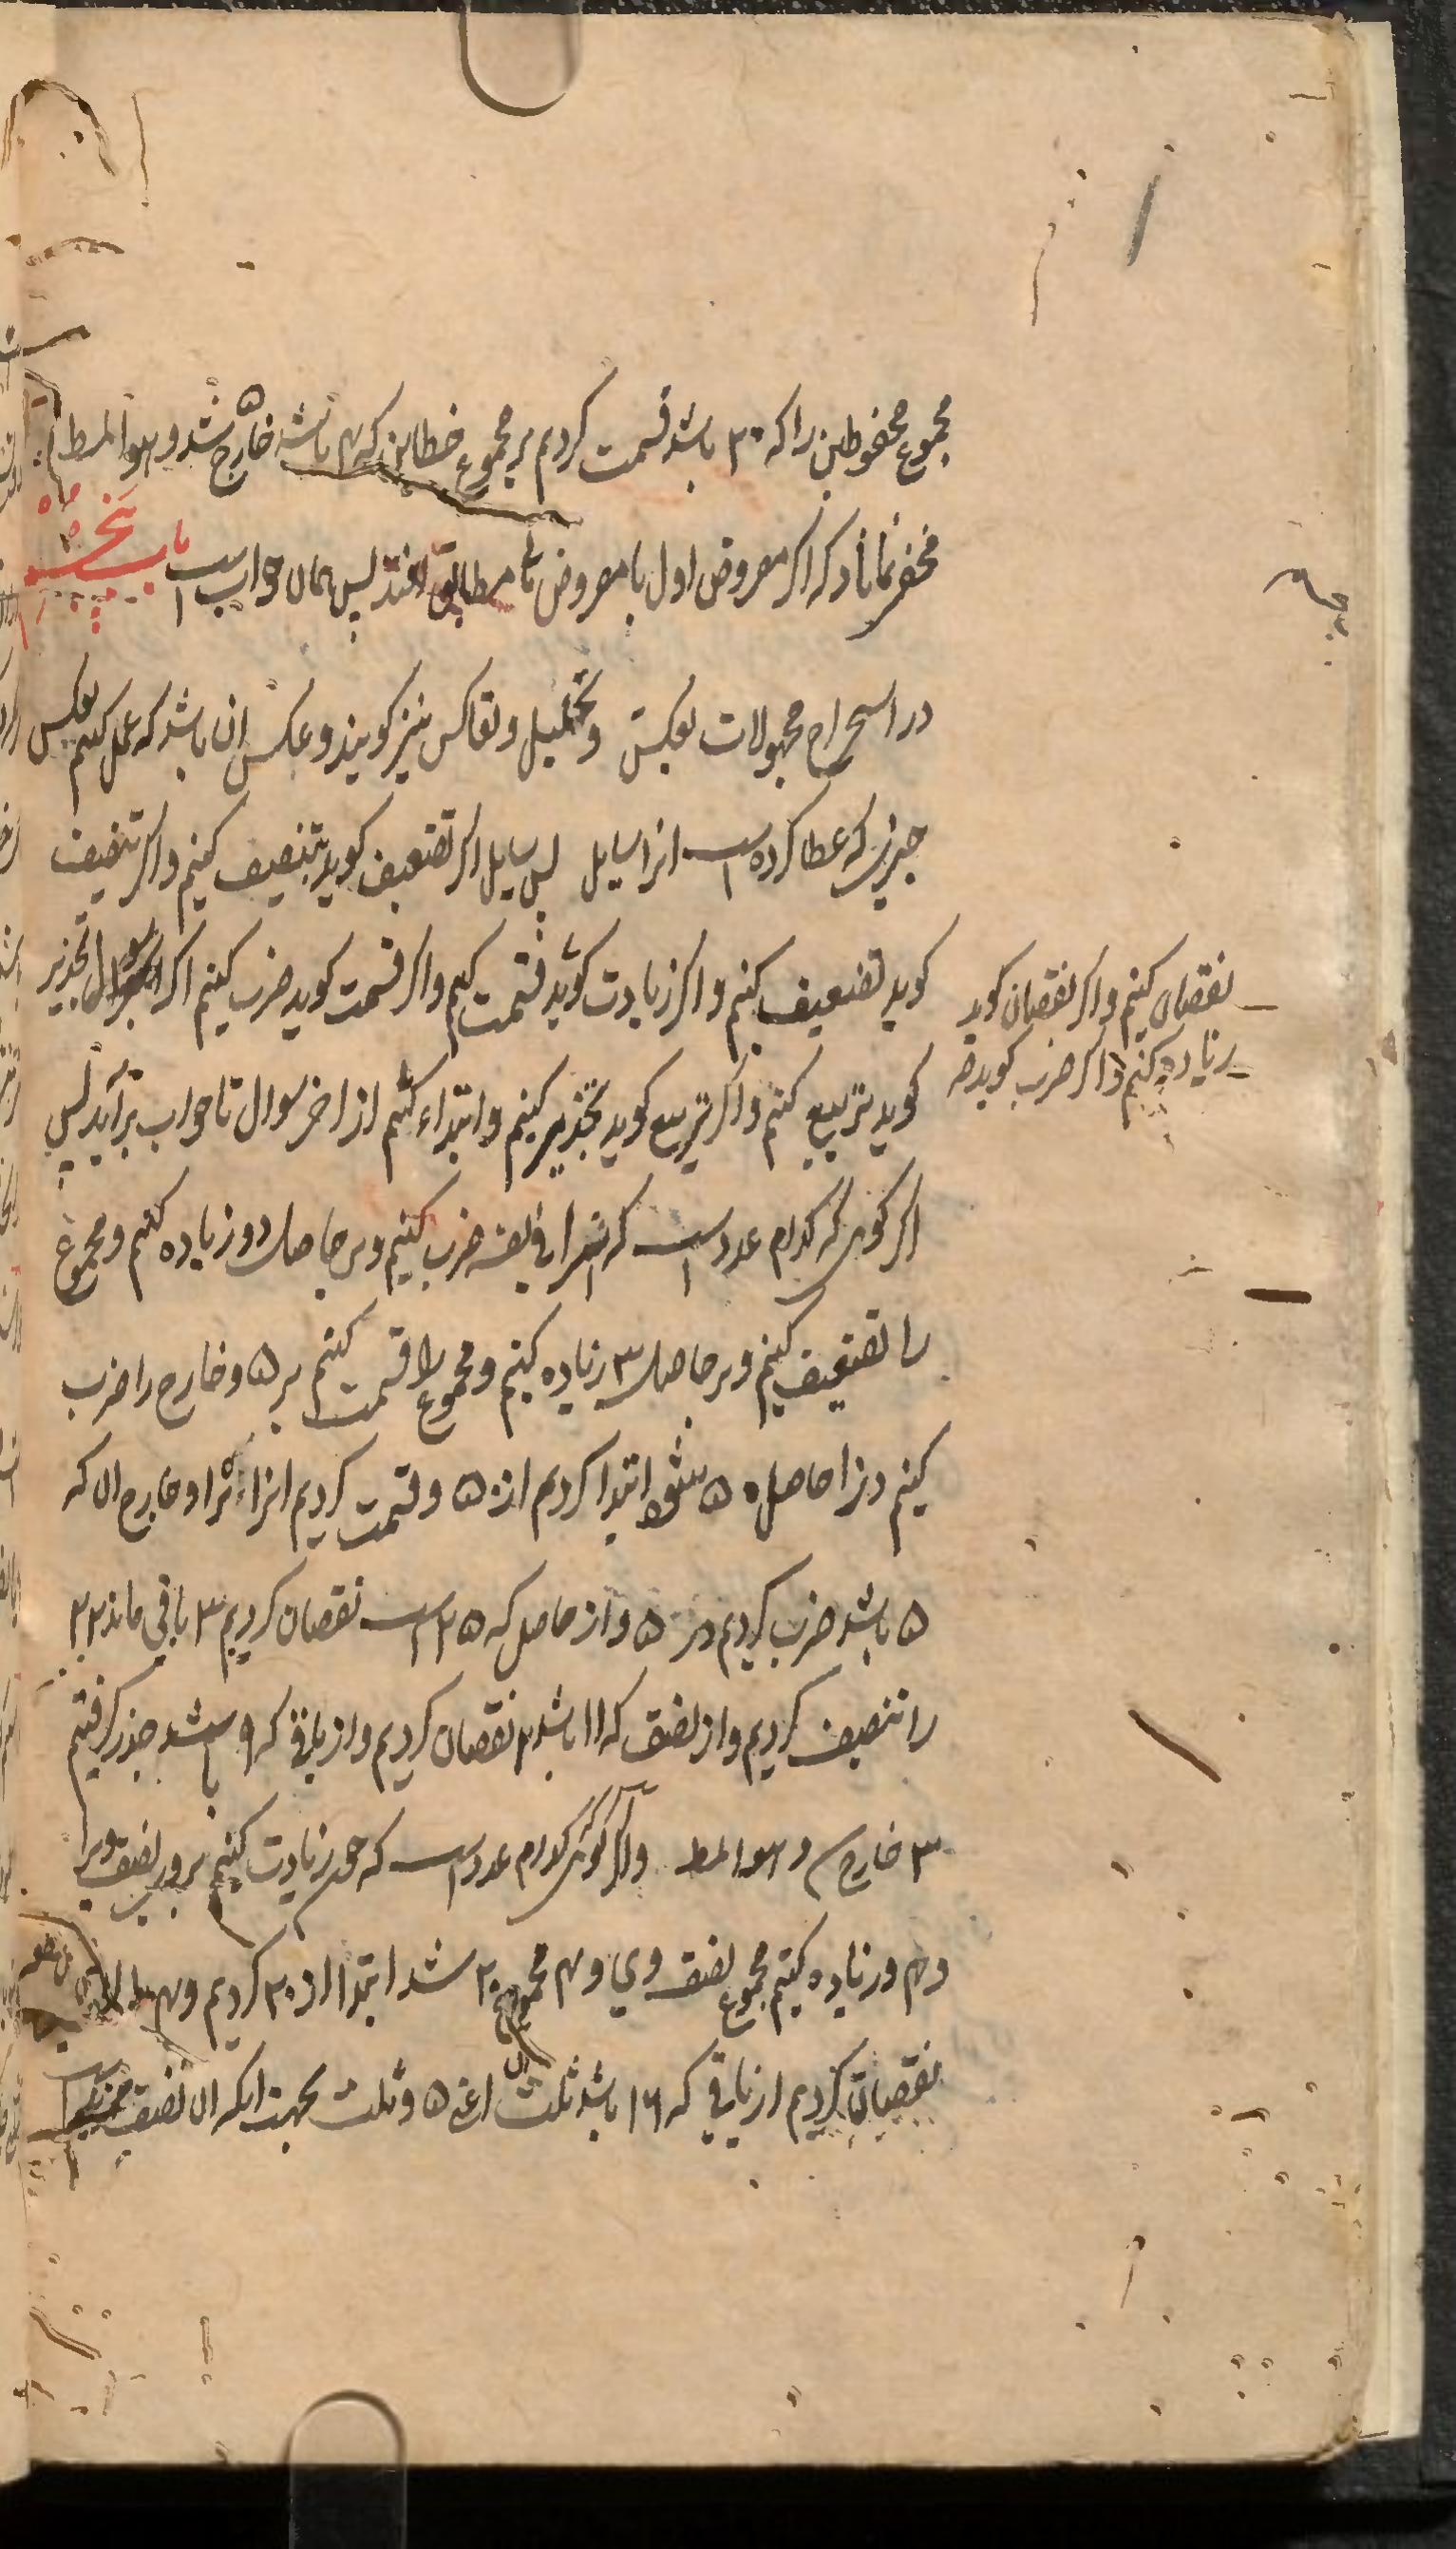 مجموع محفوظین را که ۲۰ باشد قسمت کردیم بر مجموع خطاین که ۴ باشد ۵ خارج شد و هو المط
مخفی نماناد که اگر مفروض اول با مفروض مطابق افتد پس همان جوابست باب پنجم
در استخراج مجهولات بعکس و تحلیل و تعاکس نیز کویند و عکس ان باشد که عمل کنیم بعکس
چیزی که عطا کرده است انرا سایل پس سایل اکر تضعیف کوید تنصیف کنیم و اکر تنصیف
کوید تضعیف کنیم و اکر زیادت کوید قسمت کنیم و اکر قسمت کوید ضرب کنیم اکر سوال تجذیر
نقصان کنیم و اکر نقصان کوید
زیاده کنیم و اکر ضرب کوید
کوید تربیع کنیم و اکر تربیع کوید تجذیر کنیم و ابتداء کنیم از اخر سوال تا جواب برآید پس
اکر کوی که کدام عدد است که انرا فی نفسه ضرب کنیم و بر حاصل دو زیاده کنیم و مجموع
را تضعیف کنیم و بر حاصل ۳ زیاده کنیم و مجموع را قسمت کنیم بر ۵ و خارج را ضرب
کنیم در ۱۰ حاصل ۵۰ شود ابتدا کردیم از ۵۰ و قسمت کردیم انرا بر ۱۰ و خارج ان که
۵ باشد ضرب کردیم در ۵ و از حاصل که ۲۵ است نقصان کردیم ۳ باقی ماند ۲۲
را تنصیف کردیم و از نصف که ۱۱ باشد ۲ نقصان کردیم و از باقی که ۹ باشد جذر کرفتیم
۳ خارج و هو المط و اکر کوی کدام عدد است که چون زیادت کنیم بر وی نصف ویرا
و ۴ و زیاده کنیم مجموع نصف وی و ۴ مجموع ۲۰ شد ابتدا از ۲۰ کردیم و ۴
نقصان کردیم از باقی که ۱۶ باشد ثلث ان اعنی ۵ و ثلث بجهت انکه ان نصف